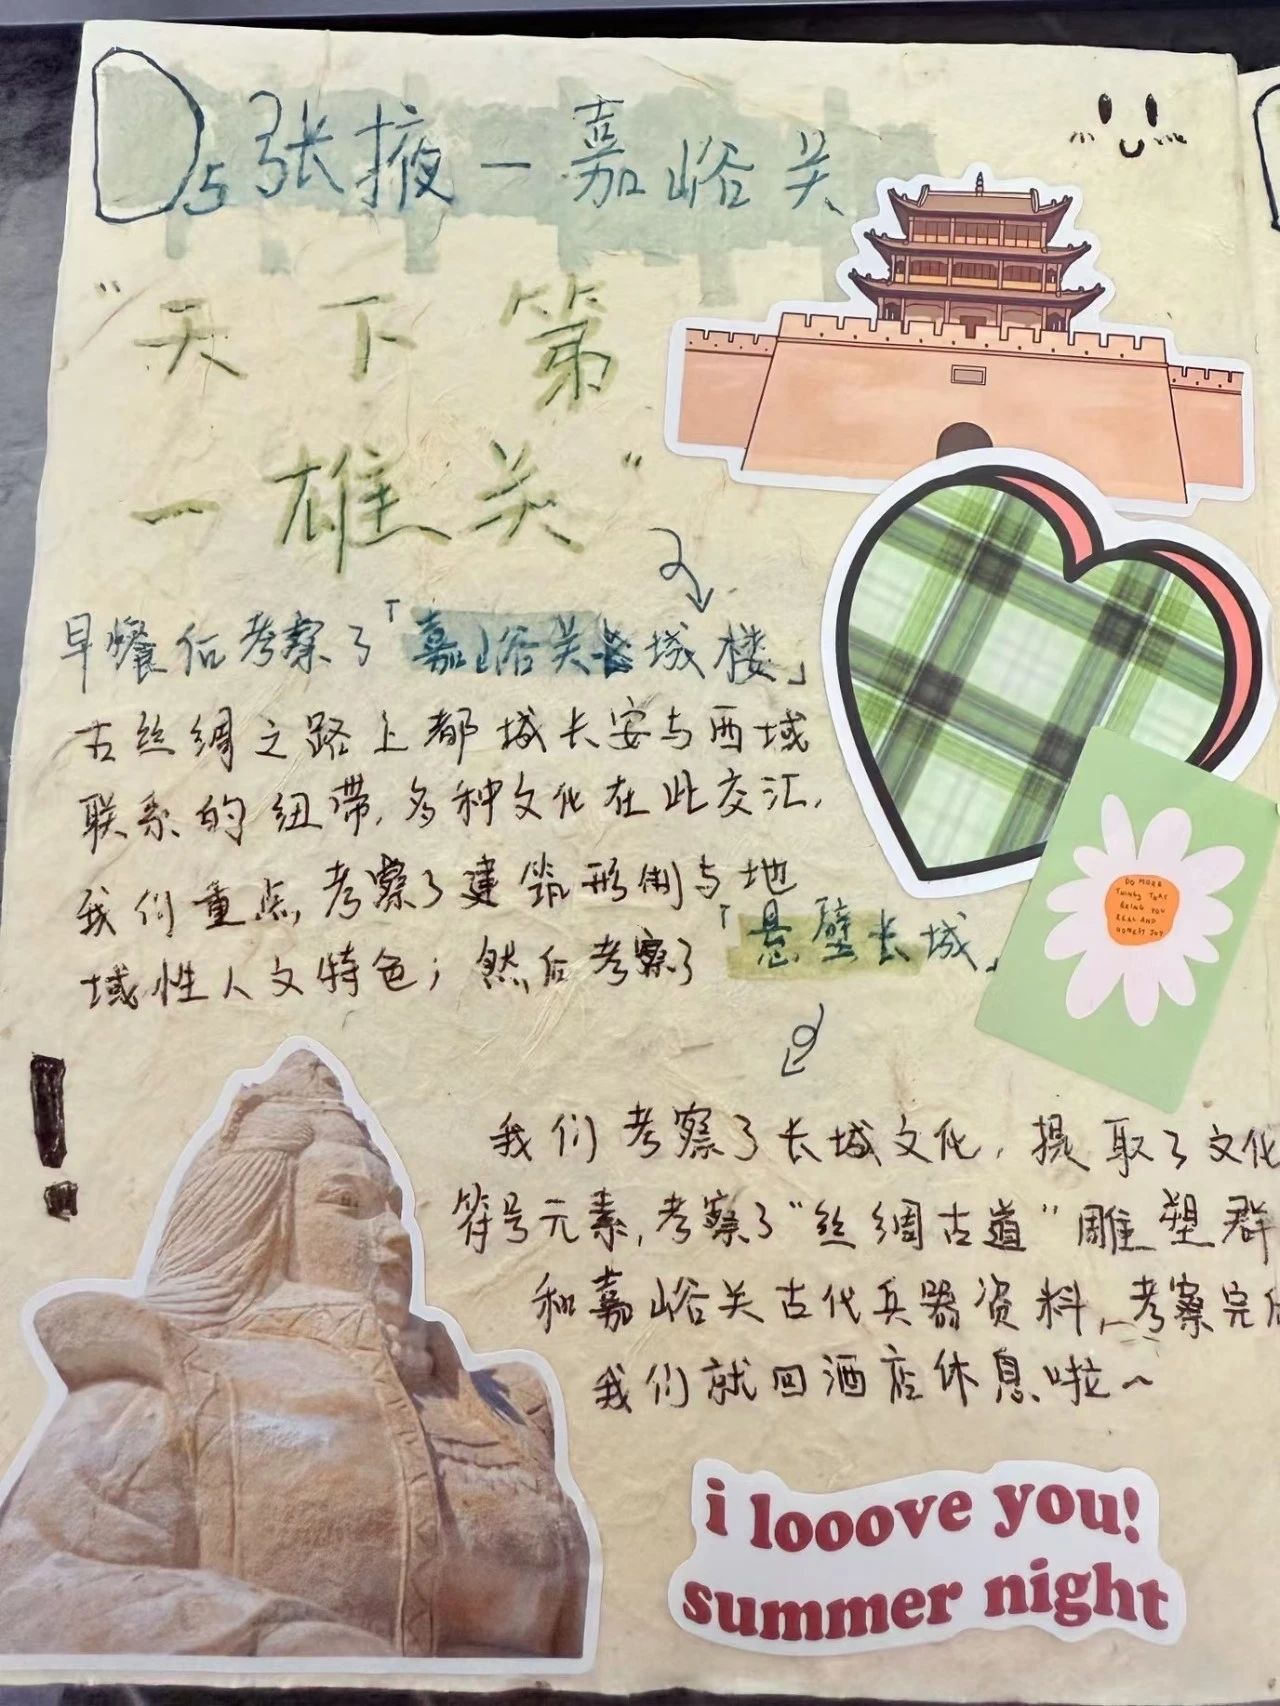 D5 张掖一嘉峪关
"天下第
一雄关"
早餐后考察了「嘉峪关长城楼」
古丝绸之路上都城长安与西域
联系的纽带,多种文化在此交汇,
我们重点考察了建筑形制与地
域性人文特色;然后考察了「悬壁长城」
我们考察了长城文化,提取了文化
符号元素,考察了"丝绸古道"雕塑群
和嘉峪关古代兵器资料,考察完后
我们就回酒店休息啦~
DO MORE
THINGS THAT
BRING YOU
REAL AND
HONEST JOY
i looove you!
summer night